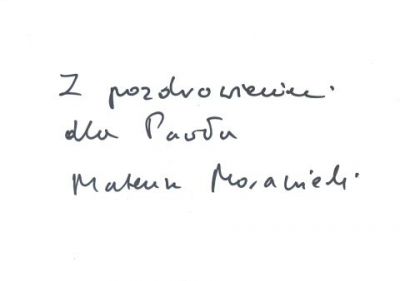 Z pozdrowieniami
dla Pawła
Mateusz Morawiecki